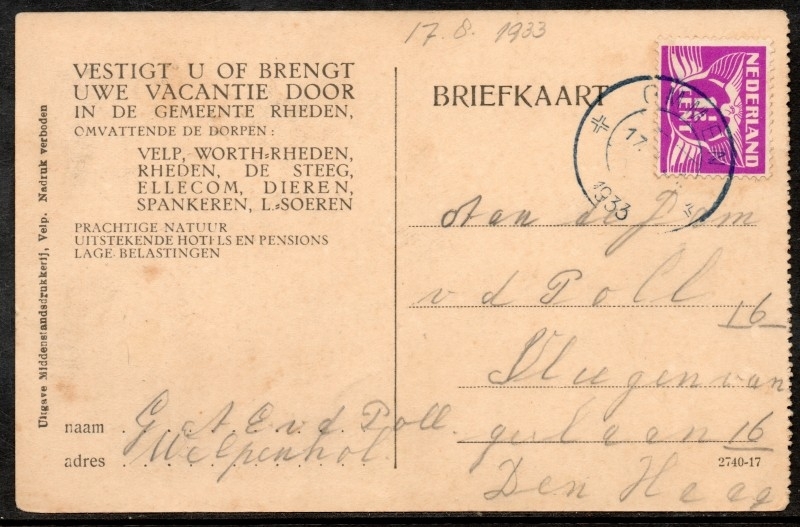 17. 8. 1933
VESTIGT U OF BRENGT
UWE VACANTIE DOOR
IN DE GEMEENTE RHEDEN,
OMVATTENDE DE DORPEN:
VELP, WORTH-RHEDEN,
RHEDEN, DE STEEG,
ELLECOM, DIEREN,
SPANKEREN, L.-SOEREN
PRACHTIGE NATUUR
UITSTEKENDE HOTELS EN PENSIONS
LAGE BELASTINGEN
Uitgave Middenstandsdrukkerij, Velp. Nadruk verboden
naam G et E v d Poll
adres Welpenhol
BRIEFKAART
NEDERLAND
CENT
OMMEN
17.
1933
Aan de
v d Poll
16
geslaan 16
2740-17
Den Haag